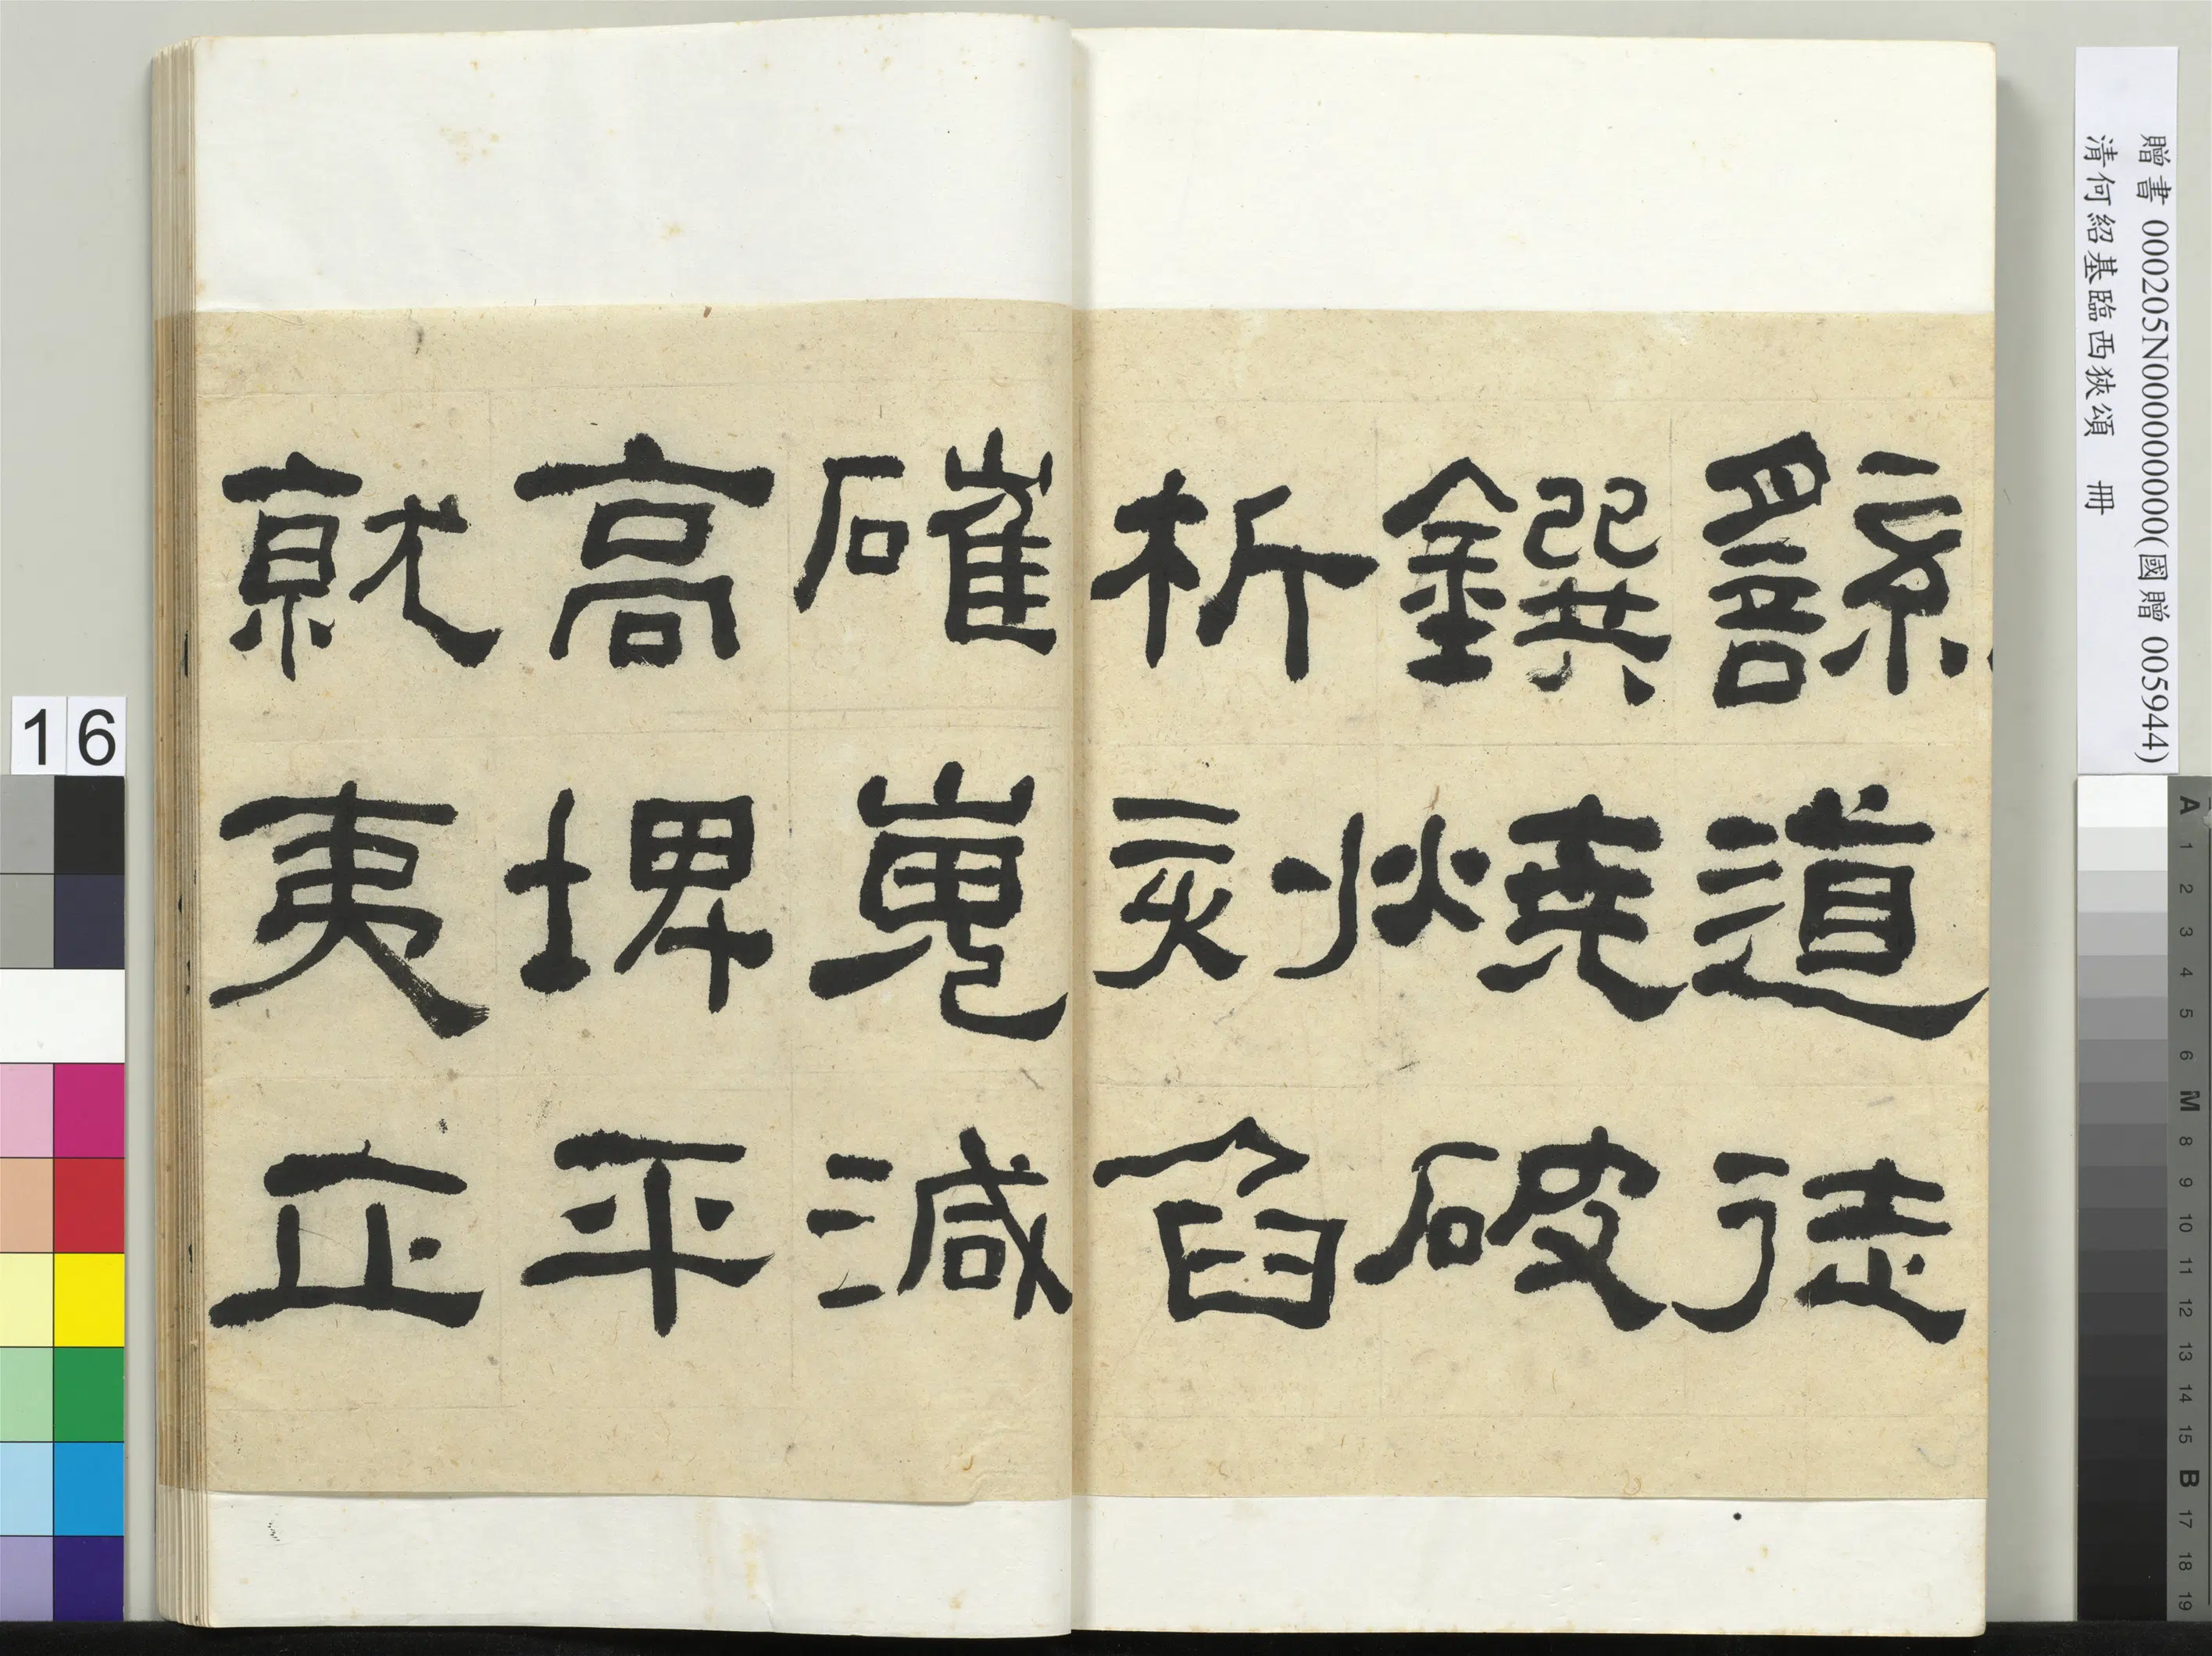 繇道徒
鐉燒破
析刻臽
磪嵬減
高埤平
就夷正
贈書 000205N000000000(國贈 005944)
清何紹基臨西狹頌 冊
16
A 1 2 3 4 5 6 M 8 9 10 11 12 13 14 15 B 17 18 19